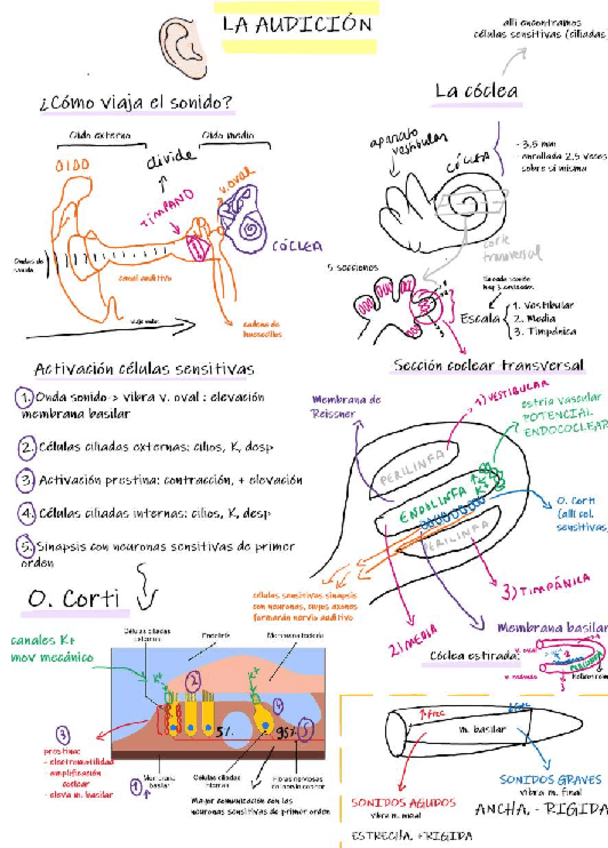 LA AUDICIÓN
allí encontramos
células sensitivas (ciliadas)
¿Cómo viaja el sonido?
La cóclea
Oído externo
Oído medio
divide
OIDO
TÍMPANO
v. oval
CÓCLEA
canal auditivo
cadena de
huesecillos
aparato
vestibular
CÓCLEA
- 3,5 mm
- enrollada 2.5 veces
sobre sí misma
corte
transversal
5 secciones
Escala
1. Vestibular
2. Media
3. Timpánica
Activación células sensitivas
1. Onda sonido-> vibra v. oval : elevación
membrana basilar
2. Células ciliadas externas: cilios, K, desp
3. Activación prestina: contracción, + elevación
4. Células ciliadas internas: cilios, K, desp
5. Sinapsis con neuronas sensitivas de primer
orden
Sección coclear transversal
Membrana de
Reissner
1) VESTIBULAR
estria vascular
POTENCIAL
ENDOCOCLEAR
PERILINFA
ENDOLINFA ↑
K+
PERILINFA
O. Corti
(allí cel.
sensitivas)
3) TIMPÁNICA
células sensitivas sinapsis
con neuronas, cuyos axones
formarán nervio auditivo
2) MEDIA
Membrana basilar
Cóclea estirada:
O. Corti
canales K+
mov mecánico
Células ciliadas
externas
Membrana tectoria
K+
K+
2
4
5
5%
95%
3
prestina:
- electromotilidad
- amplificación
coclear
- eleva m. basilar
1
Membrana
basilar
Células ciliadas
internas
Fibras nerviosas
del nervio coclear
Mayor comunicación con las
neuronas sensitivas de primer orden
↑ frec
↓ frec
m. basilar
SONIDOS AGUDOS
vibra m. inicial
ESTRECHA, +RIGIDA
SONIDOS GRAVES
vibra m. final
ANCHA, - RIGIDA